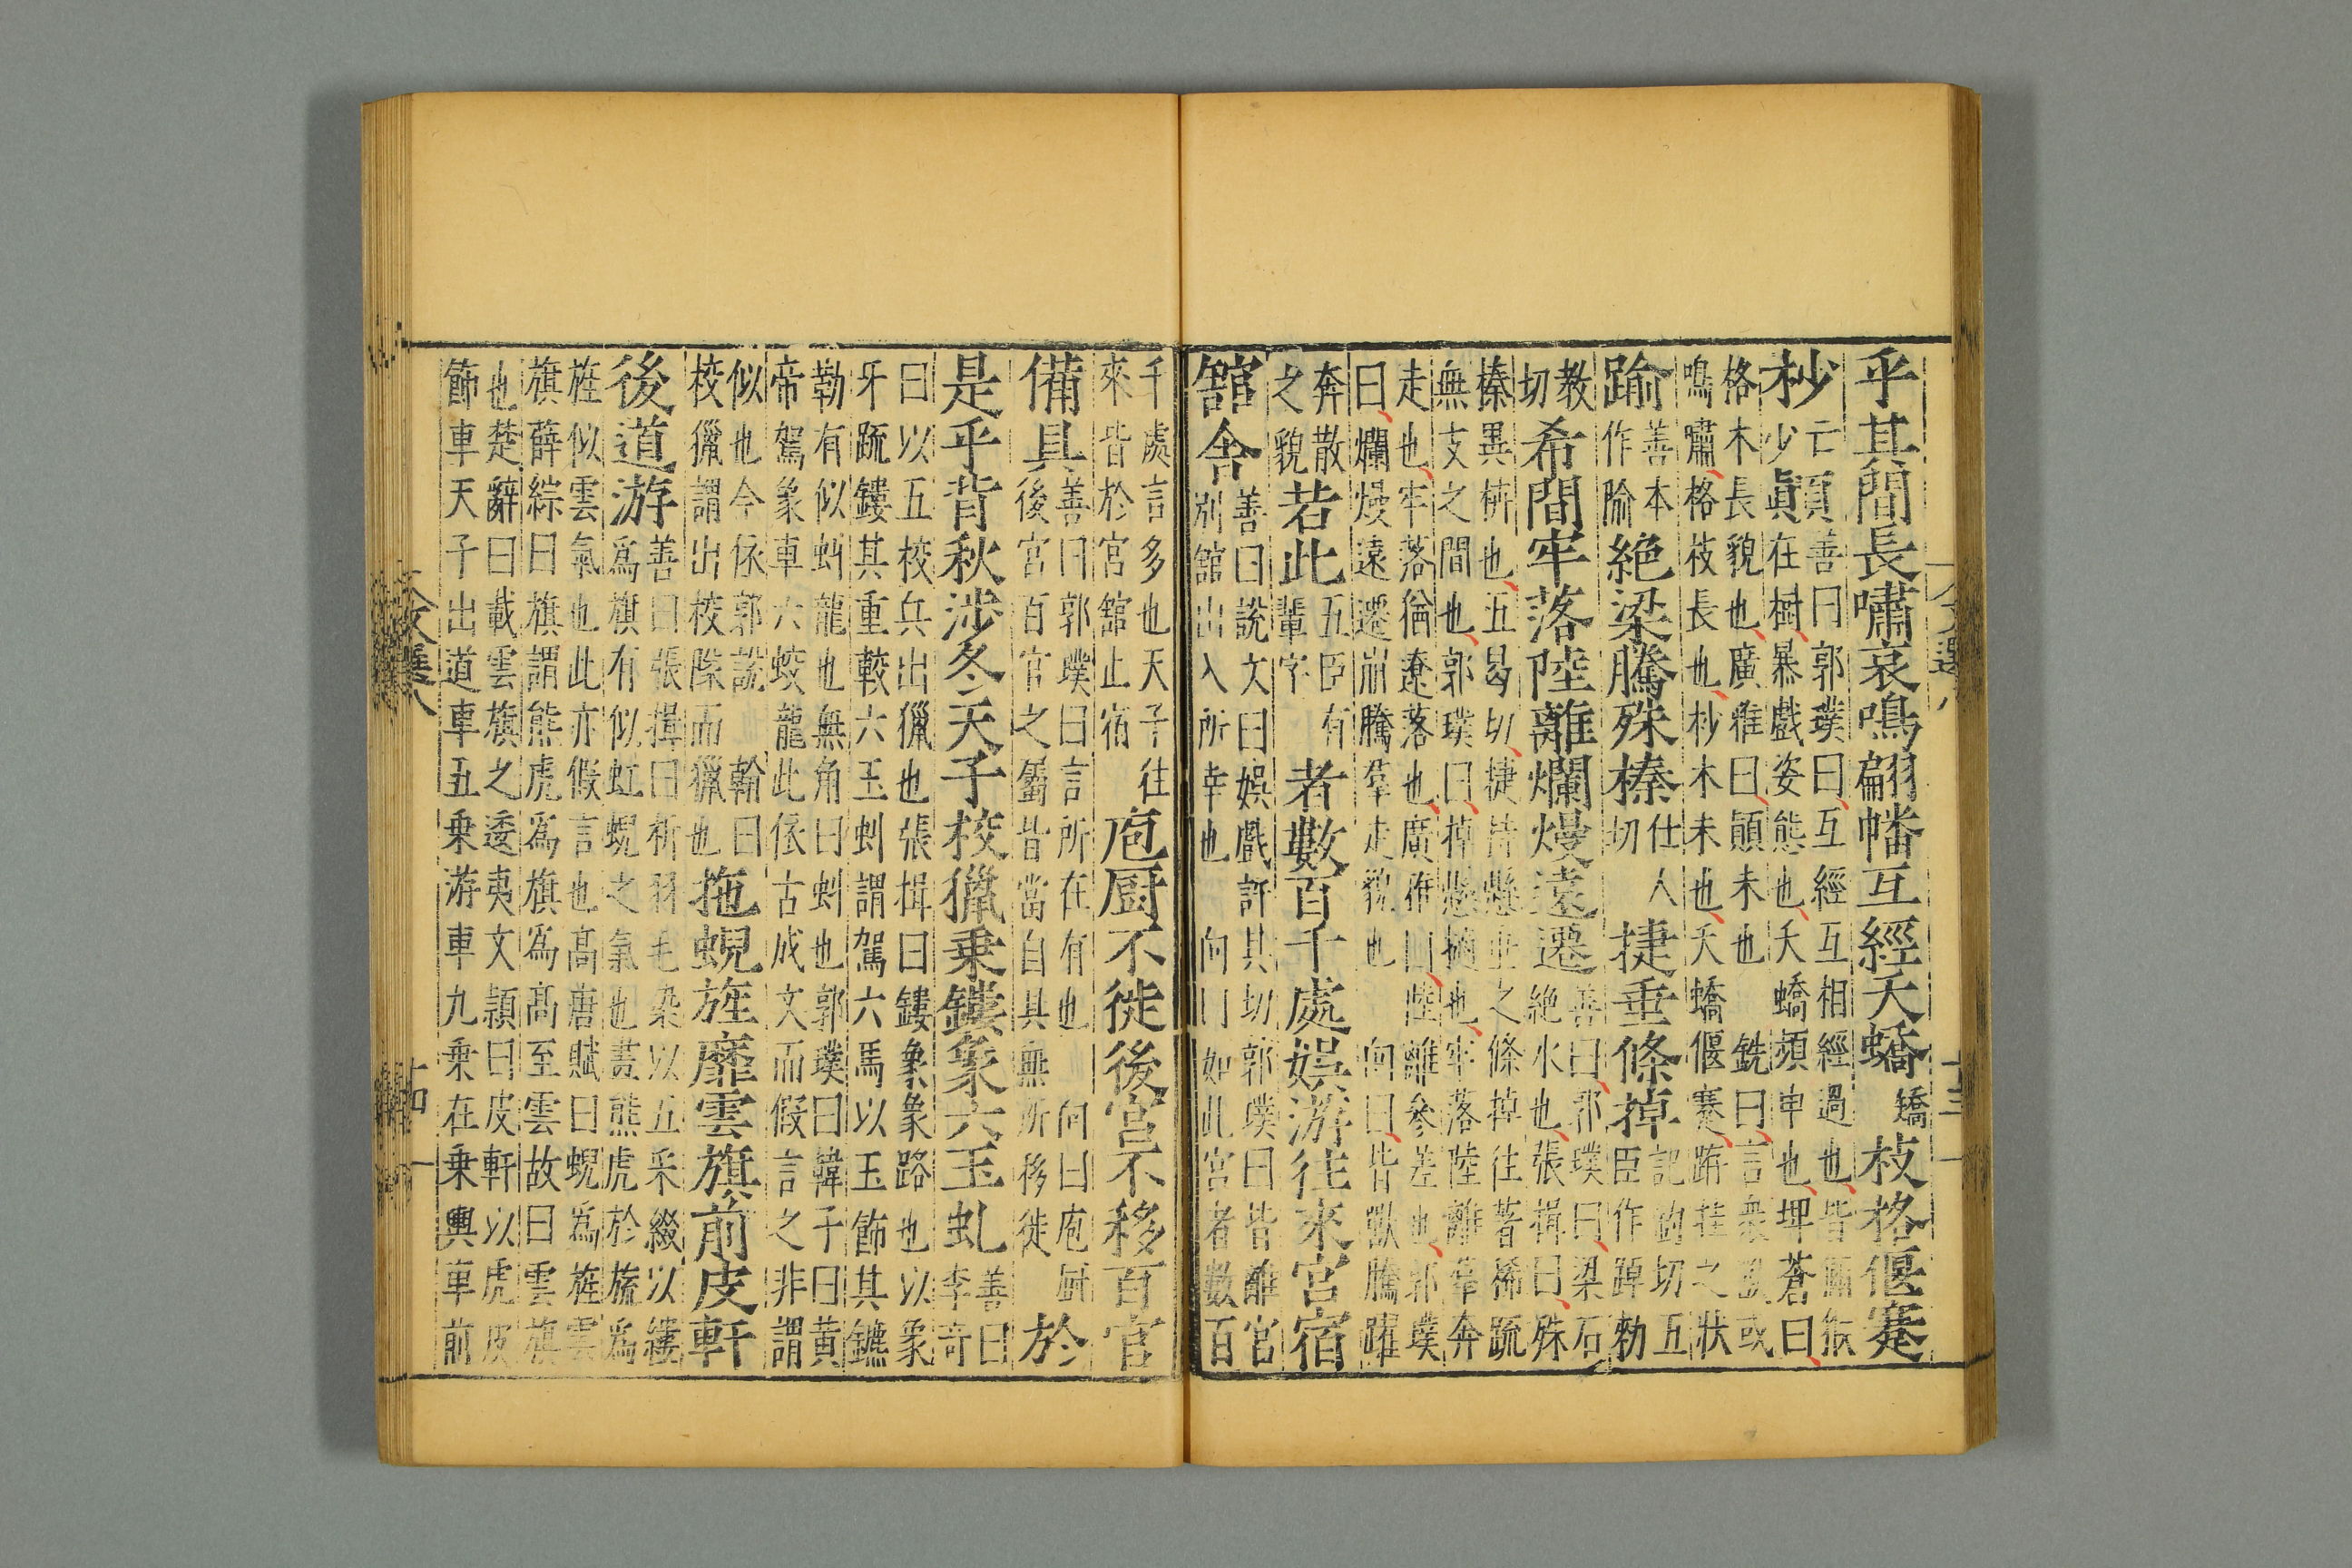 乎其間長嘯哀鳴翩幡互經夭蟜矯枝格偃蹇
杪亡少顛善曰郭璞曰互經互相經過也皆猨
在樹暴戲姿態也夭蟜頻申也埤蒼曰
格木長貌也廣雅曰顛末也 銑曰言衆猨或
鳴嘯格枝長也杪木末也夭蟜偃蹇挂之狀
踰善本作隃絶梁騰殊榛仕人切捷垂條掉記豹切五臣作踔勑
教切希間牢落陸離爛熳遠遷善曰郭璞曰梁石
絶水也張揖曰殊
榛異枿也五曷切捷持懸垂之條掉往著稀疏
無支之間也郭璞曰掉懸擿也牢落陸離羣奔
走也牢落猶遼落也廣雅曰陸離參差也郭璞
曰爛熳遠遷崩騰羣走貌也 向曰皆獸騰躍
奔散之貌若此五臣有輩字者數百千處娛游往來宮宿
館舍善曰說文曰娛戲許其切郭璞曰皆離宮
別館出入所幸也 向曰如此宮者數百
文選八 十三
千處言多也天子往來皆於宮館止宿庖厨不徙後宮不移百官
備具善曰郭璞曰言所在有也 向曰庖厨
後宮百官之屬皆當自具無所移徙於
是乎背秋涉冬天子校獵乗鏤象六玉虬善曰李奇
曰以五校兵出獵也張揖曰鏤象象路也以象
牙疏鏤其重較六玉虯謂駕六馬以玉飾其鑣
勒有似虯龍也無角曰虯也郭璞曰韓子曰黃
帝駕象車六蛟龍此依古成文而假言之非謂
似也今依郭說 翰曰校獵謂出校隊而獵也拖蜺旌靡雲旗前皮軒
後道游善曰張揖曰析羽毛染以五采綴以縷
爲旗有似虹蜺之氣也畫熊虎於旒爲
旌似雲氣也此亦假言也高唐賦曰蜺爲旌雲
旗薛綜曰旗謂熊虎爲旗爲高至雲故曰雲旗
也楚辭曰載雲旗之逶夷文穎曰皮軒以虎皮
飾車天子出道車五乗游車九乗在乗輿車前
文選八 十四